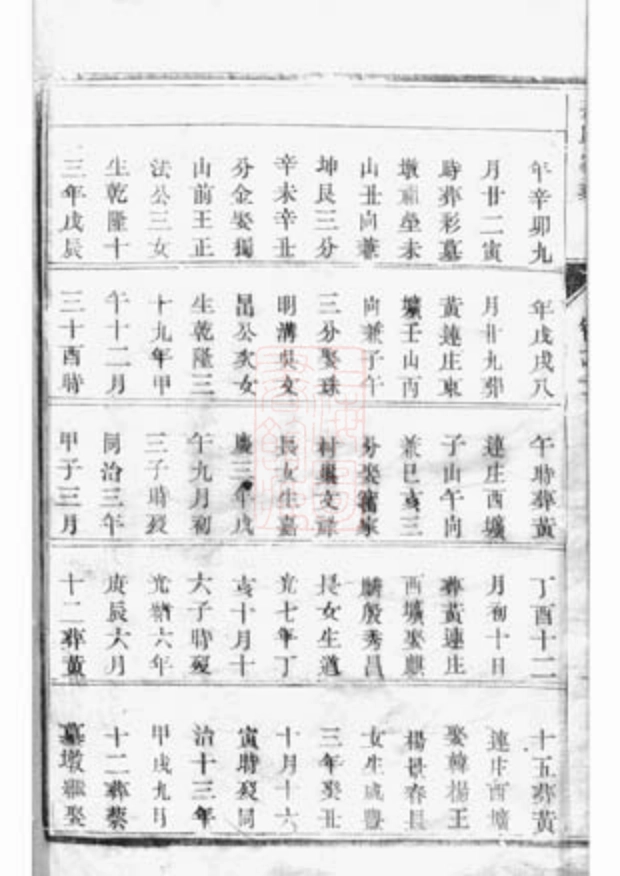 年辛卯九
月廿二寅
時葬彩墓
墩祖塋未
山丑向兼
坤艮三分
辛未辛丑
分金娶獨
山前王正
法公三女
生乾隆十
三年戊辰
年戊戌八
月廿九葬
黃連庄東
壙壬山丙
向兼子午
三分娶珠
明溝吳文
昌公次女
生乾隆三
十九年甲
午十二月
三十酉時
午時葬黃
連庄西壙
子山午向
兼巳亥三
分娶家
村文
長女生嘉
慶三年戊
午九月初
三子時歿
同治三年
甲子三月
丁酉十二
月初十日
葬黃連庄
西壙娶麒
麟殷秀昌
長女生道
光七年丁
亥十月十
六子時歿
光緒六年
庚辰六月
十二葬黃
十五葬黃
連庄西壙
娶韓楊王
楊景春長
女生咸豐
三年癸丑
十月十六
寅時歿同
治十三年
甲戌九月
十二葬蔡
墓墩繼娶